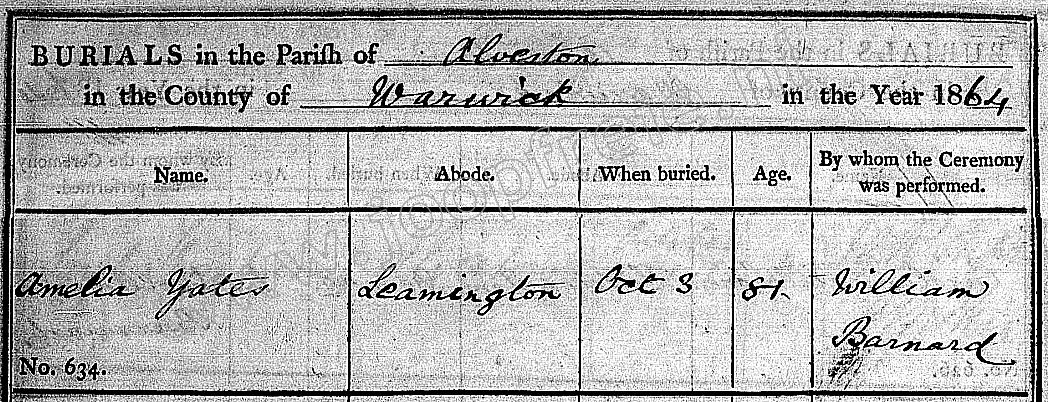 BURIALS in the Parish of Alveston
in the County of Warwick in the Year 1864
Name. Abode. When buried. Age. By whom the Ceremony was performed.
Amelia Yates Leamington Oct 3 81 William
Barnard
No. 634.